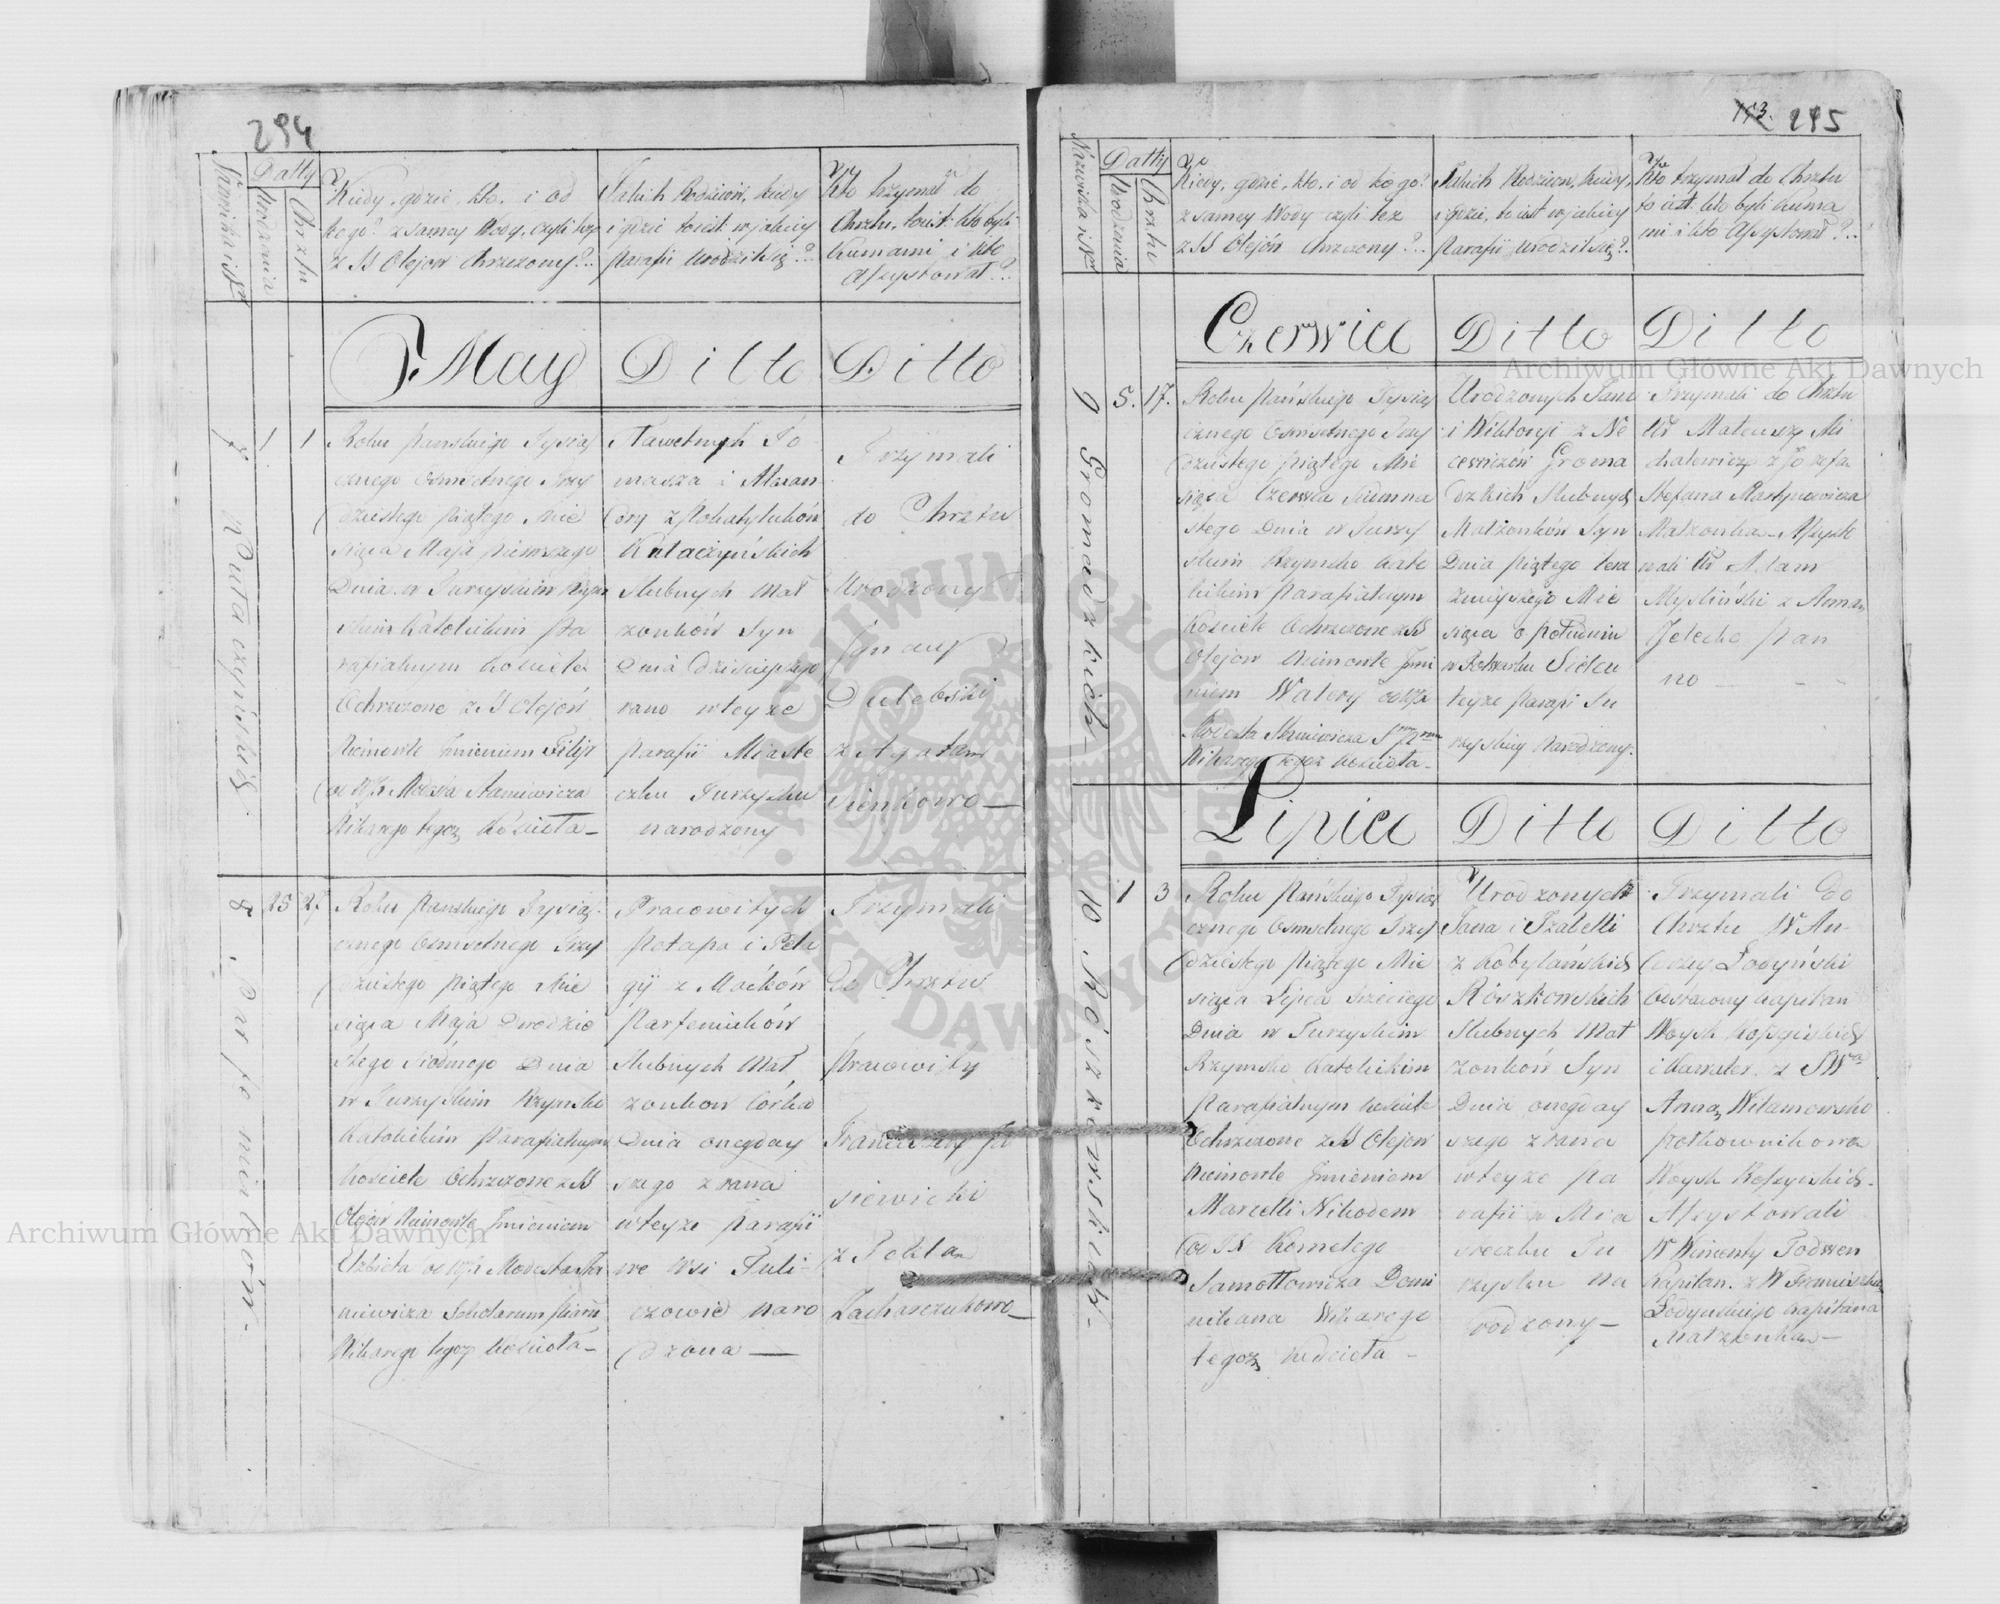 294
Nazwiska i Nr
Datty
Urodzenia
Chrztu
Kiedy, gdzie, kto, i od
kogo? z samey Wody, czyli też
z SS Olejow Chrzczony?
Jakich Rodziców, kiedy
i gdzie to iest w jakiey
Parafii Urodził się?
Kto trzymał do
Chrztu, to iest: kto byli
Kumami i kto
Assystował?
May
Ditto
Ditto
7 Kutaczyńskich
1
1
Roku Pańskiego Tysiąc
cznego Osmsetnego Trzy
dziestego Piątego Mie
siąca Maja pierwszego
Dnia w Turzyskim Rzym
skim Katolickim Pa
rafialnym Kościele
Ochrzczone z SS Olejów
Niemowle Imieniem Filip
od WJX Modesta Staniewicza
Wikarego tegoż Kościoła
Sławetnych To
masza i Alexan
dry z
Kutaczyńskich
Slubnych Mał
żonków Syn
Dnia dzisieyszego
rano w teyże
Parafii Miaste
czku Turzysku
narodzony
Trzymali
do Chrztu
Urodzony
Ignacy
Dulębski
z Agatą
Sienkową
8 Parfeniuków
25
27
Roku Pańskiego Tysiąc
cznego Osmsetnego Trzy
dziestego Piątego Mie
siąca Maja Dwudzie
stego siódmego Dnia
w Turzyskim Rzymsko
Katolickim Parafialnym
Kościele Ochrzczone z SS
Olejów Niemowle Imieniem
Elżbieta od WJX Modesta Sta
niewicza Scholarum Piarum
Wikarego tegoż Kościoła
Pracowitych
Potapa i Pela
gij z Maćków
Parfeniuków
Slubnych Mał
żonkow Córka
Dnia onegday
szego z rana
w teyże Parafii
we Wsi Tuli
czowie naro
dzona
Trzymali
do Chrztu
Pracowity
Franciszek Ja
siewicki
z Teklą
Zacharczukową
113. 295
Nazwiska i Nr
Datty
Urodzenia
Chrztu
Kiedy, gdzie, kto, i od kogo?
z samey Wody czyli też
z SS Olejów Chrzczony?
Jakich Rodzicow, kiedy,
i gdzie, to iest w jakiey
Parafii Urodził się?
Kto trzymał do Chrztu
to iest: kto byli Kuma
mi i kto Assystował?
Czerwiec
Ditto
Ditto
9 Gromadzkich
5.
17.
Roku Pańskiego Tysiąc
cznego Osmsetnego Trzy
dziestego Piątego Mie
siąca Czerwca Siedmna
stego Dnia w Turzy
skim Rzymsko Kato
lickim Parafialnym
Kościele Ochrzczone z SS
Olejow Niemowle Imie
niem Walery od WJX
Modesta Staniewicza
Wikarego tegoż Kościoła
Urodzonych Jana
i Wiktoryi z Ne
cewiczów Groma
dzkich Slubnych
Małżonków Syn
Dnia Piątego tera
znieyszego Mie
siąca o Południu
w Folwarku
teyże Parafi Tu
rzyskiey Narodzony.
Trzymali do Chrztu
W Mateusz Mi
chalewicz z Jozefą
Stefana Martynowicza
Małżonką. Assysto
wali W Adam
Myśliński z Anną
Panną
Lipiec
Ditto
Ditto
10 Roszkowskich
1
3
Roku Pańskiego Tysiąc
cznego Osmsetnego Trzy
dziestego Piątego Mie
siąca Lipca Trzeciego
Dnia w Turzyskim
Rzymsko Katolickim
Parafialnym Kościele
Ochrzczone z SS Olejow
Niemowle Imieniem
Marcelli Nikodem
od JX Kornelego
Samotłowicza Domi
nikana Wikarego
tegoż Kościoła
Urodzonych
Jana i Izabelli
z Kobylańskich
Roszkowskich
Slubnych Mał
żonków Syn
Dnia onegday
szego z rana
w teyże Pa
rafii w Mia
steczku Tu
rzysku na
rodzony
Trzymali do
Chrztu W An
drzey Łodyński
Odstawny Kapitan
Woysk Rossyiskich
i Kawaler z JWą
Anną Wilamowską
Pułkownikową
Woysk Rossyiskich.
Assystowali
W Wincenty Podwen
Kapitan. z W Franciszką
Łodyńskiego Kapitana
Małżonką
Archiwum Główne Akt Dawnych
Archiwum Główne Akt Dawnych
ARCHIWUM GŁÓWNE AKT DAWNYCH